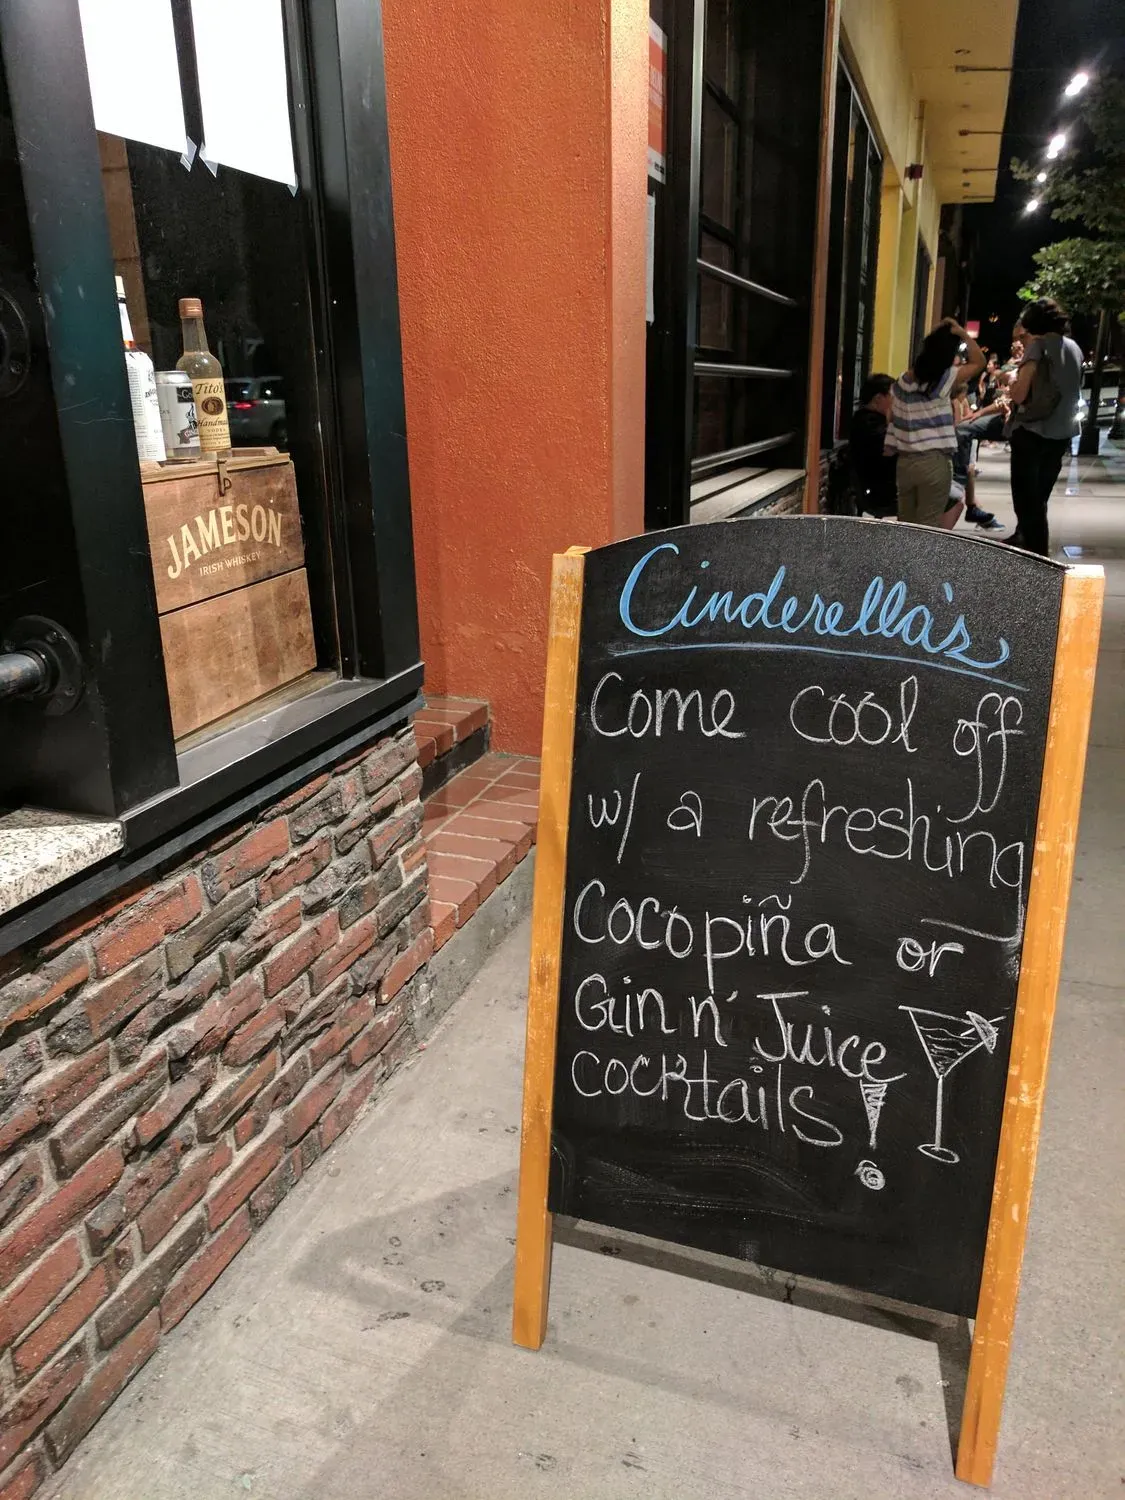 Cinderella's
Come cool off
w/ a refreshing
Cocopiña or
Gin n' Juice
cocktails!
Tito's
Handmade
VODKA
JAMESON
IRISH WHISKEY